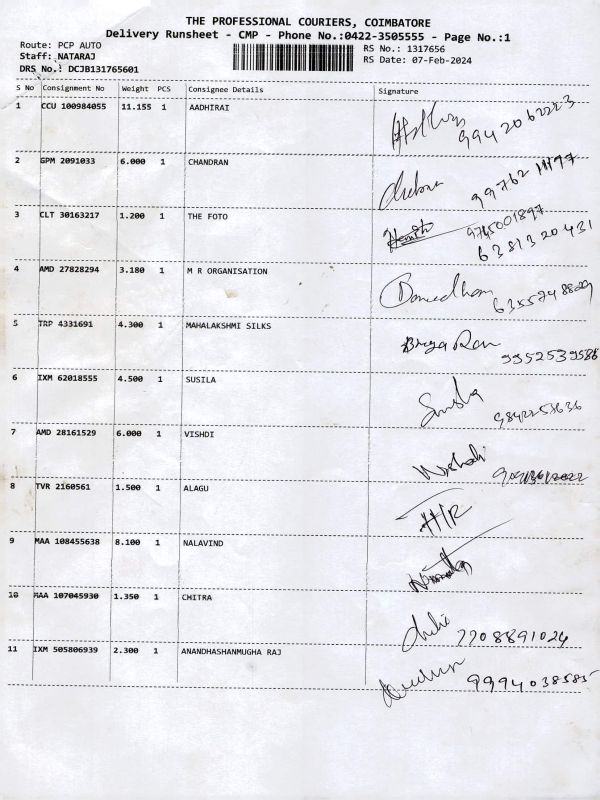 THE PROFESSIONAL COURIERS, COIMBATORE
Delivery Runsheet - CMP - Phone No.:0422-3505555 - Page No.:1
Route: PCP AUTO
RS No.: 1317656
Staff: NATARAJ
RS Date: 07-Feb-2024
DRS No.: DCJB131765601
S No Consignment No Weight PCS Consignee Details Signature
1 CCU 100984055 11.155 1 AADHIRAI
2 GPM 2091033 6.000 1 CHANDRAN
3 CLT 30163217 1.200 1 THE FOTO 9745001897
6381320431
4 AMD 27828294 3.180 1 M R ORGANISATION
5 TRP 4331691 4.300 1 MAHALAKSHMI SILKS 9952539586
6 IXM 62018555 4.500 1 SUSILA
7 AMD 28161529 6.000 1 VISHDI
8 TVR 2160561 1.500 1 ALAGU
9 MAA 108455638 8.100 1 NALAVIND
10 MAA 107045930 1.350 1 CHITRA 7708891024
11 IXM 505806939 2.300 1 ANANDHASHANMUGHA RAJ 9994038585